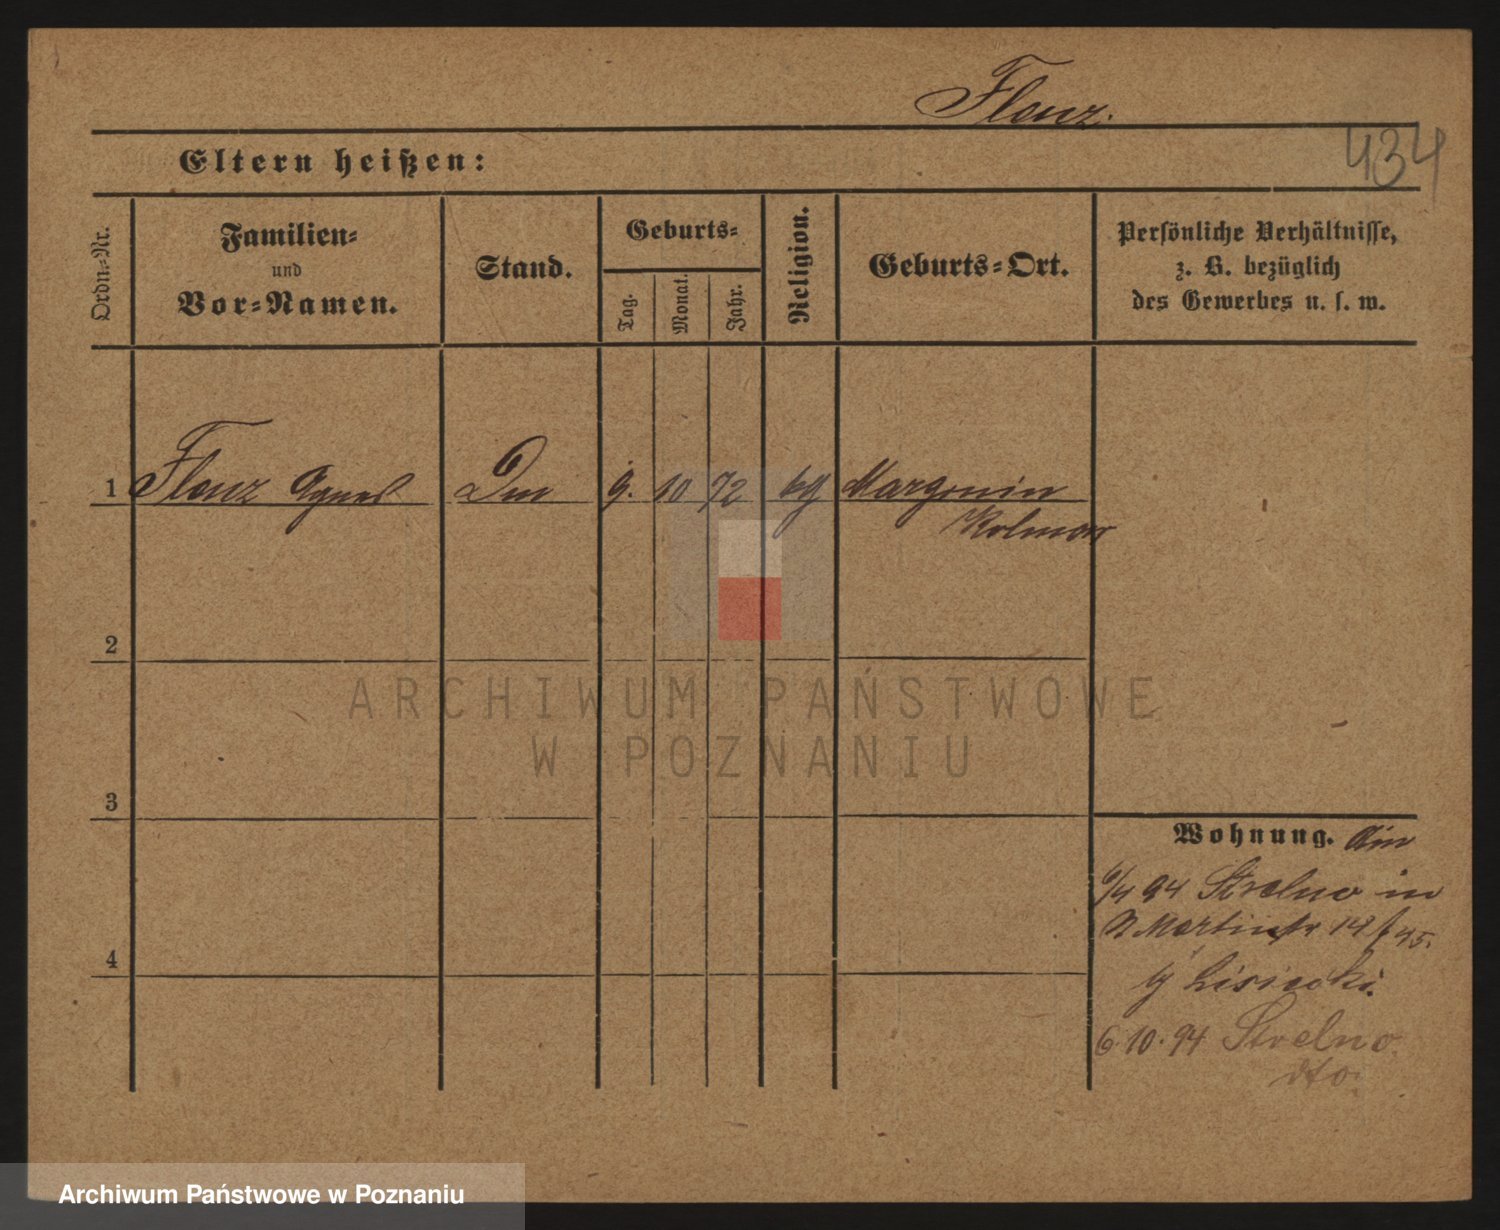 Flenz.
434
Eltern heißen:
Ordn.-Nr.
Familien-
und
Vor-Namen.
Stand.
Geburts-
Tag.
Monat.
Jahr.
Religion.
Geburts-Ort.
Persönliche Verhältnisse,
z. B. bezüglich
des Gewerbes u. s. w.
1 Flenz Agnes 9. 10 72 Margonin
Kolmar
2
3
4
Wohnung.
6/4 94 Strelno in
Martinstr 14
Lisiecki.
6.10.94 Strelno
dto.
ARCHIWUM PAŃSTWOWE
W POZNANIU
Archiwum Państwowe w Poznaniu